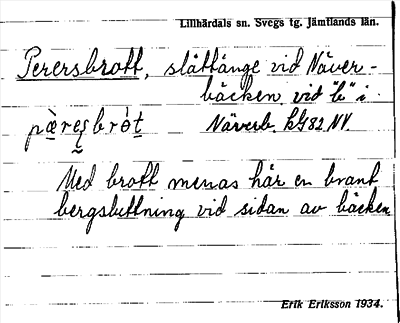 Lillhärdals sn. Svegs tg. Jämtlands län.
Perersbrott, slåttänge vid Näver-
bäcken vid "b" i
pæ̀res̮bròt Näverb. kG82 NV.
Med brott menas här en brant
bergsluttning vid sidan av bäcken
Erik Eriksson 1934.